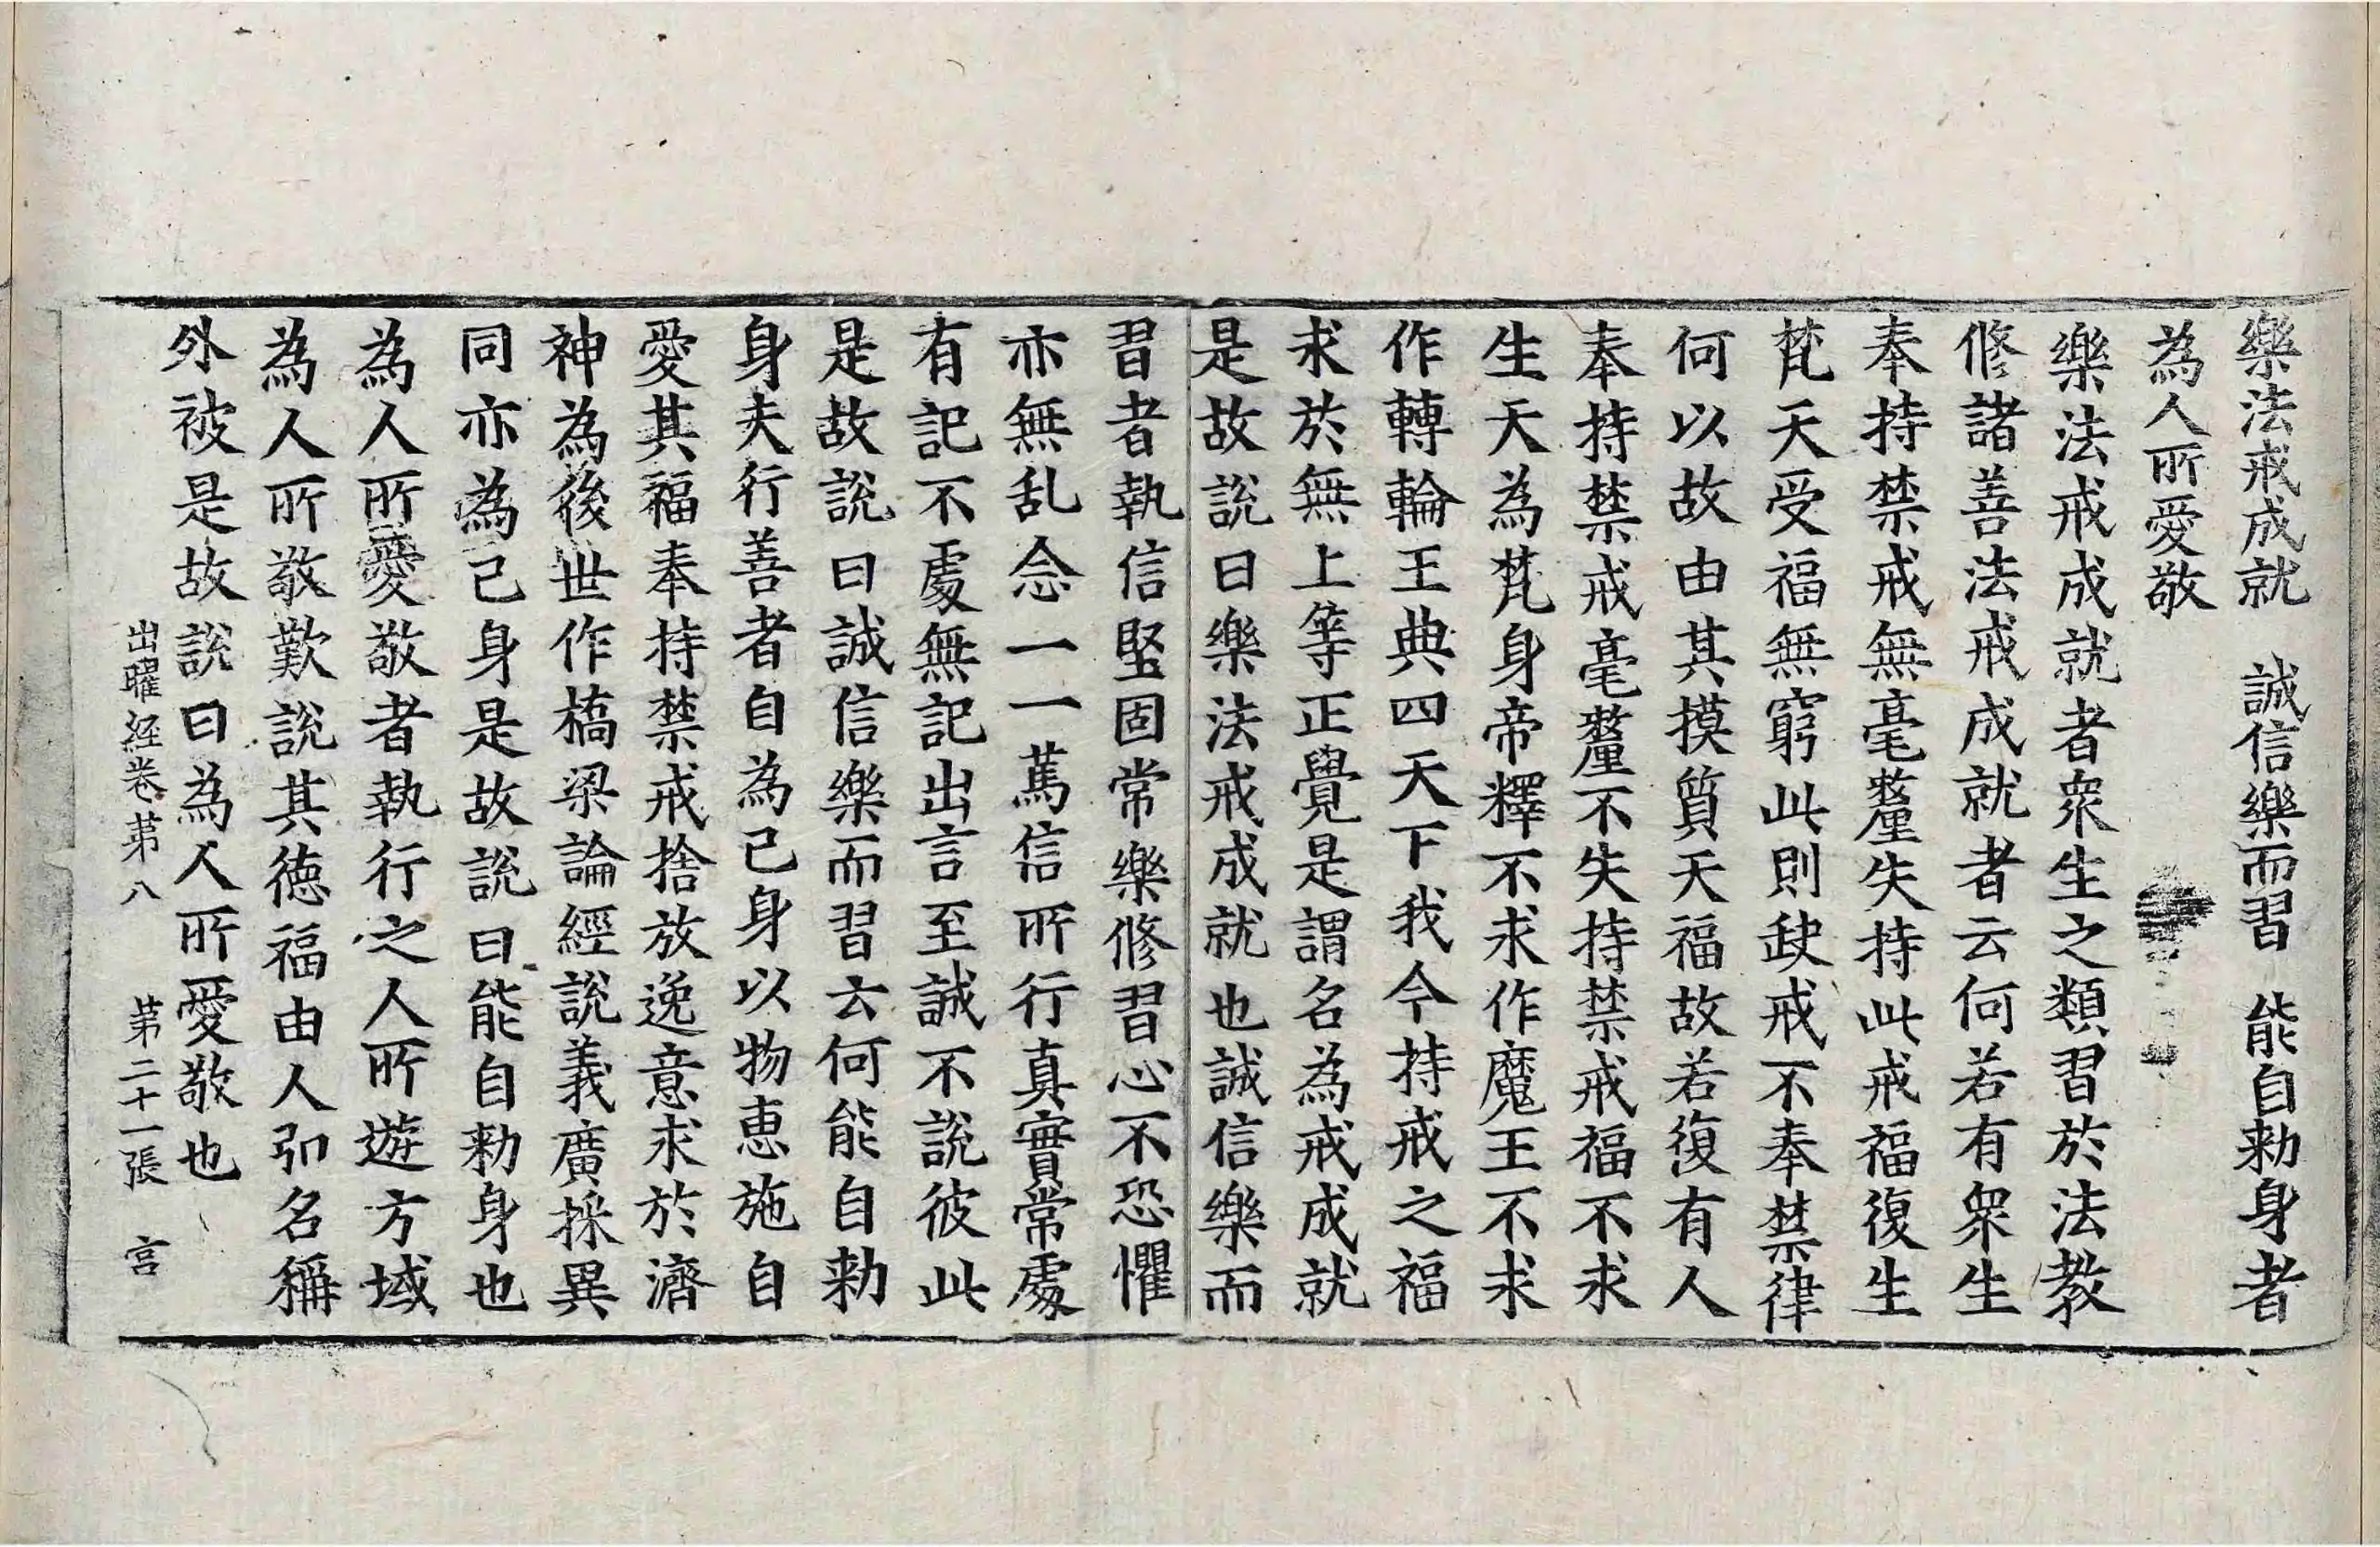 樂法戒成就　誠信樂而習　能自勑身者
為人所愛敬
樂法戒成就者衆生之類習於法教
修諸善法戒成就者云何若有衆生
奉持禁戒無毫釐失持此戒福復生
梵天受福無窮此則缺戒不奉禁律
何以故由其摸質天福故若復有人
奉持禁戒毫釐不失持禁戒福不求
生天為梵身帝釋不求作魔王不求
作轉輪王典四天下我今持戒之福
求於無上等正覺是謂名為戒成就
是故說曰樂法戒成就也誠信樂而
習者執信堅固常樂修習心不恐懼
亦無乱念一一萬信所行真實常處
有記不處無記出言至誠不說彼此
是故說曰誠信樂而習云何能自勑
身夫行善者自為己身以物惠施自
愛其福奉持禁戒捨放逸意求於濟
神為後世作橋梁論經說義廣採異
同亦為己身是故說曰能自勑身也
為人所愛敬者執行之人所遊方域
為人所敬歎說其德福由人引名稱
外被是故說曰為人所愛敬也
出曜経卷苐八　苐二十一張　宫